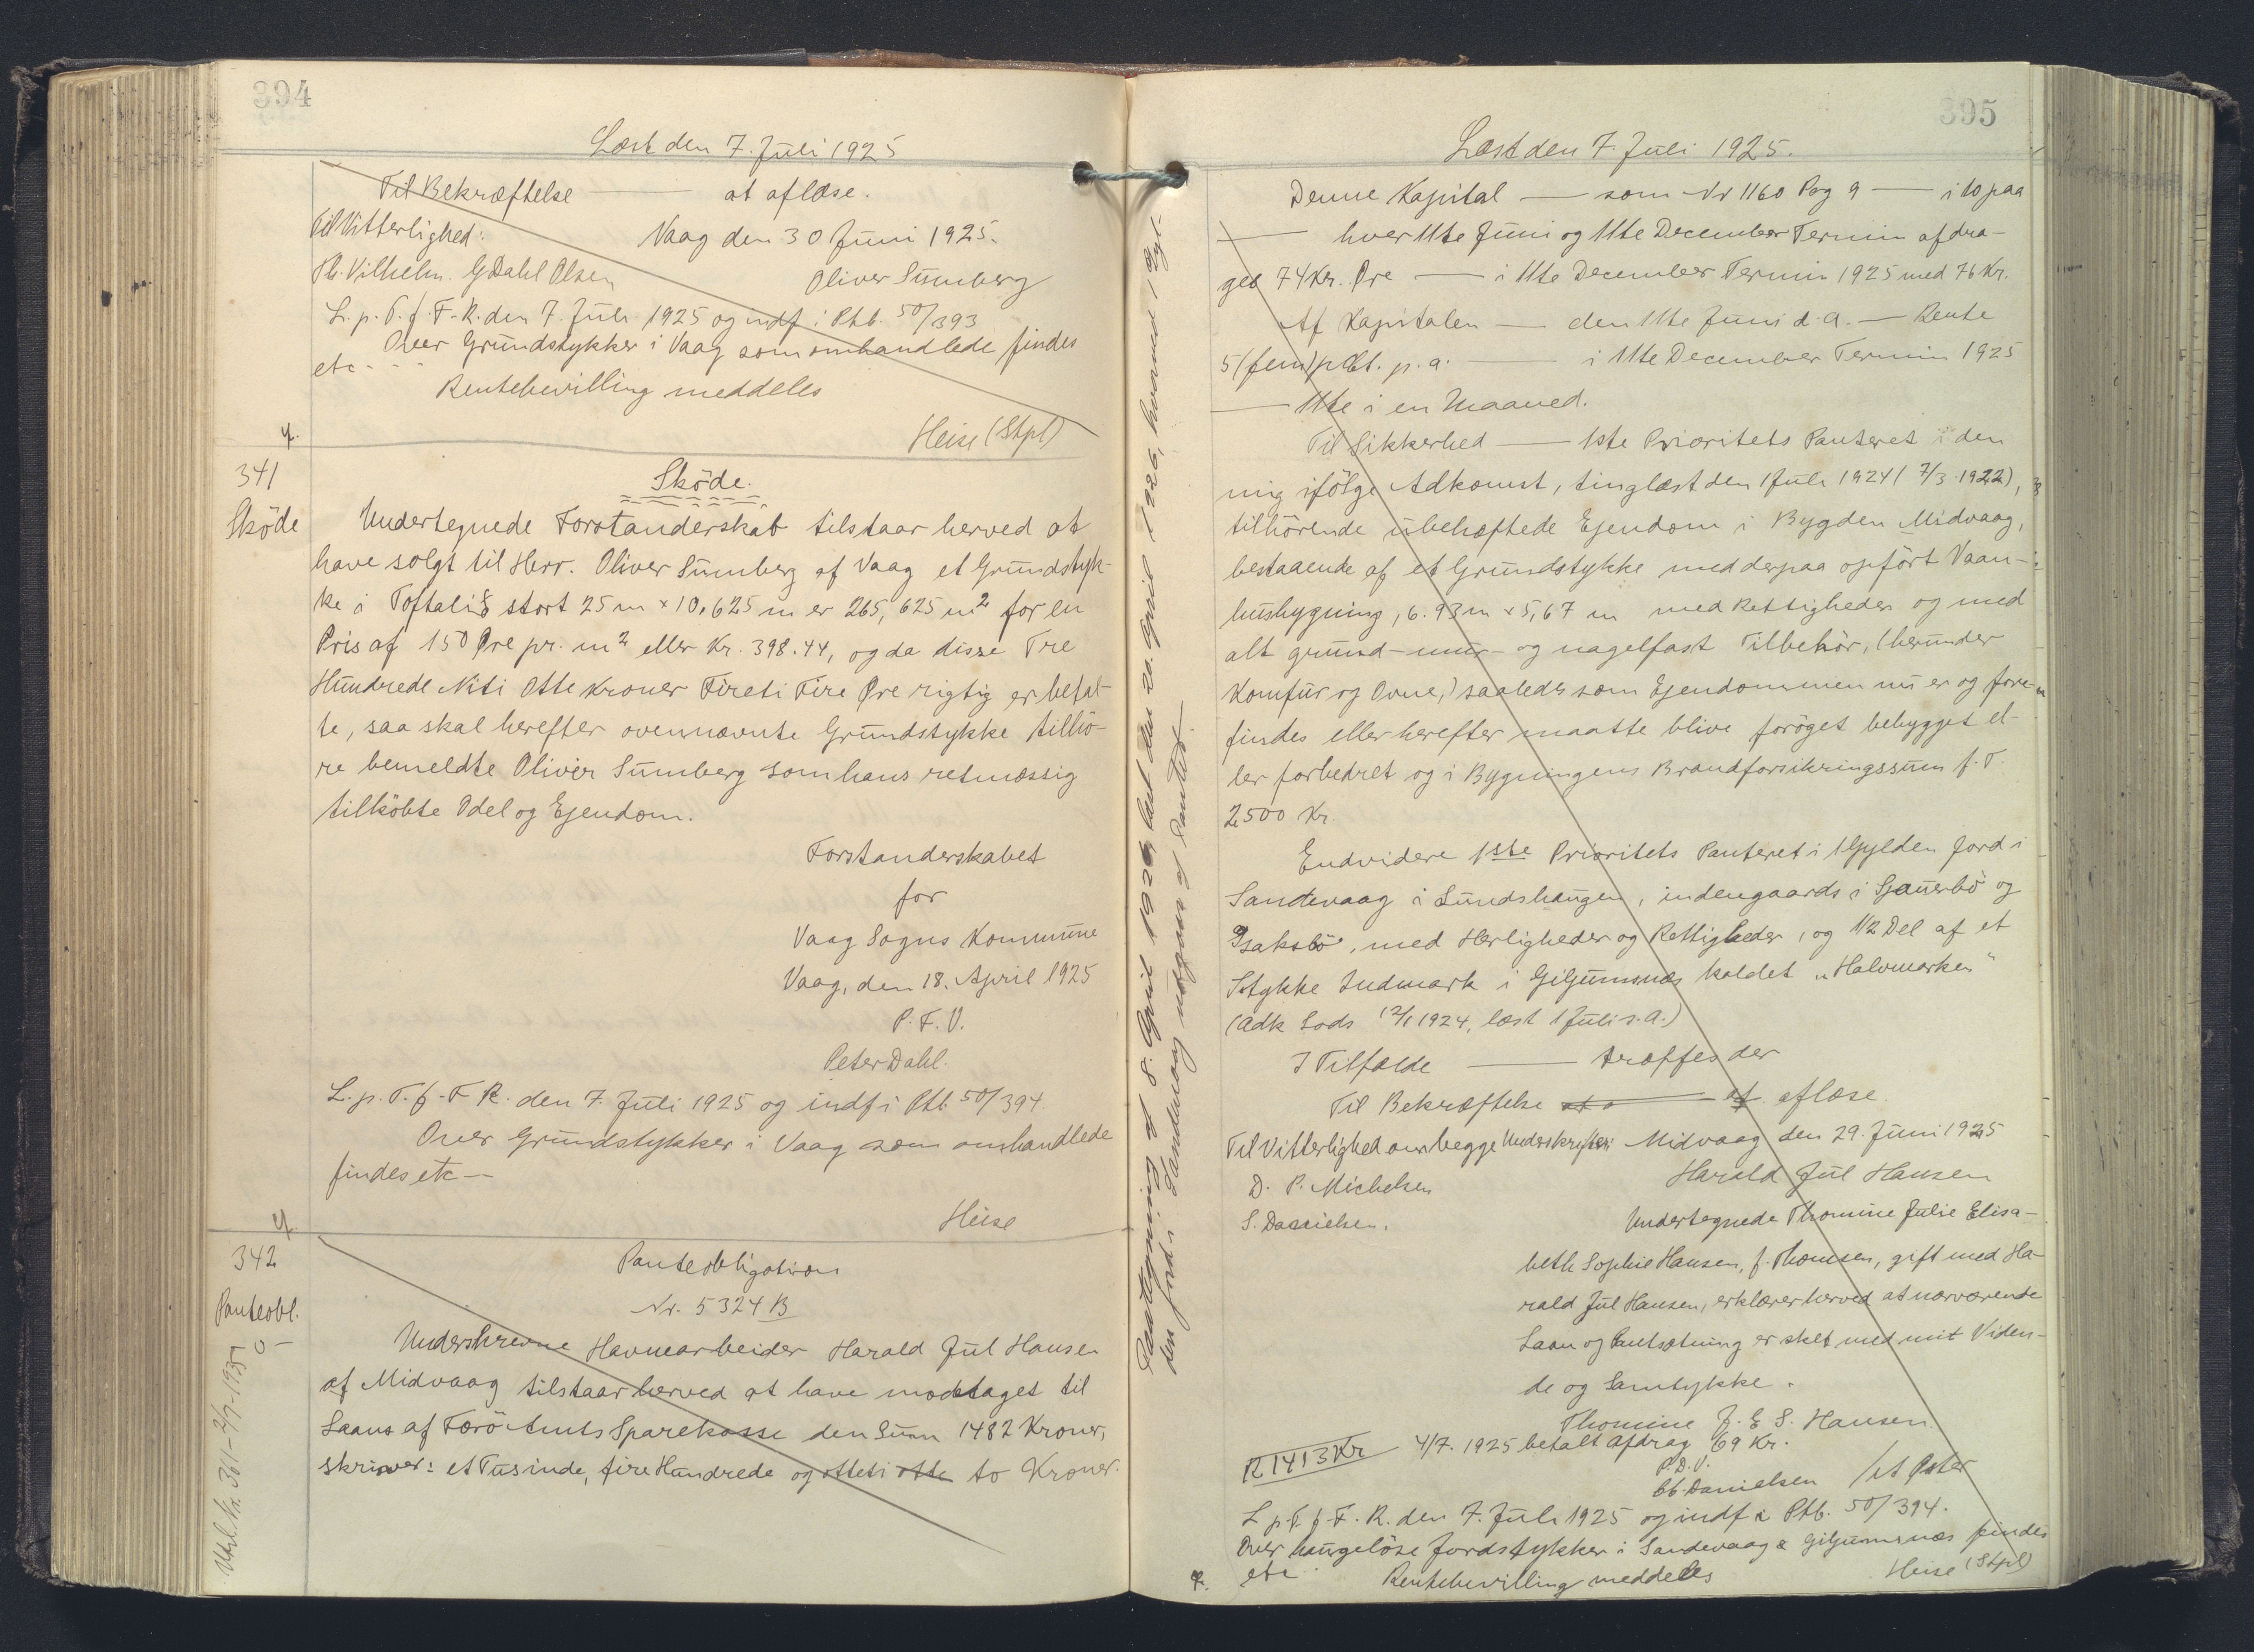 394
Læst den 7. Juli 1925
Til Bekræftelse — at aflæse.
Til Vitterlighed:
Vaag den 30 Juni 1925.
Vilhelm. G Dahl Olsen
Oliver Sumberg
L. p. T. f. F. R. den 7. Juli 1925 og indf i Ptb. 50/393
Over Grundstykker i Vaag som omhandlede findes
etc - - -
Rentebevilling meddeles
Heise (Stpl)
341
Sköde
Sköde.
Undertegnede Forstanderskab tilstaar herved at
have solgt til Herr. Oliver Sumberg af Vaag et Grundstyk-
ke i Toftalið stort 25 m × 10,625 m er 265,625 m² for en
Pris af 150 Øre pr. m² eller Kr. 398.44, og da disse Tre
Hundrede Niti Otte Kroner Fireti Fire Øre rigtig er betal-
te, saa skal herefter ovennævnte Grundstykke tilhö-
re bemeldte Oliver Sumberg som hans retmæssig
tilköbte Odel og Ejendom.
Forstanderskabet
for
Vaag Sogns Kommune
Vaag, den 18. April 1925
P. F. V.
Peter Dahl.
L. p. T. f. F R. den 7. Juli 1925 og indf i Ptb. 50/394
Over Grundstykker i Vaag som omhandlede
findes etc —
Heise
342
Panteobl.
Panteobligation
Nr. 5324 B
Underskrevne Havnearbeider Harald Jul Hansen
af Midvaag tilstaar herved at have modtaget til
Laans af Færö Amts Sparekasse den Sum 1482 Kroner,
skriver: et Tusinde, fire Hundrede og otteti otte to Kroner.
395
Læst den 7. Juli 1925.
Denne Kapital — som Nr 1160 Pag 9 — i 10 paa
— hver 11te Juni og 11te December Termin afdra-
ges 74 Kr. Øre — i 11te December Termin 1925 med 76 Kr.
Af Kapitalen — den 11te Juni d. a. — Rente
5 (fem) pCt. p. a. — i 11te December Termin 1925
— 11te i en Maaned.
Til Sikkerhed — 1ste Prioritets Panteret i den
mig ifölge Adkomst, tinglæst den 1 Juli 1924 ( 7/3 1922),
tilhörende ubehæftede Ejendom i Bygden Midvaag,
bestaaende af et Grundstykke med derpaa opfört Vaan-
husbygning, 6.93 m × 5,67 m med Rettigheder og med
alt grund- mur- og nagelfast Tilbehör, (herunder
Komfur og Ovne,) saaledes som Ejendommen nu er og fore-
findes eller herefter maatte blive foröget bebygget el-
ler forbedret og i Bygningens Brandforsikringssum f. T.
2500 Kr.
Endvidere 1ste Prioritets Panteret i 1 Gylden Jord i
Sandevaag i Lundshaugen, indengaards i Sjauerbö og
Isaksbö, med Herligheder og Rettigheder, og 1/2 Del af et
Stykke Indmark i Giljumsnæs kaldet „Halvmarken“
(Adk Lods 12/1 1924, læst 1 Juli s. a.)
I Tilfælde — træffes der
Til Bekræftelse — at aflæse.
Til Vitterlighed om begge Underskrifter:
Midvaag den 29. Juni 1925
D. P. Michelsen
Harald Jul Hansen
S. Danielsen.
Undertegnede Thomine Julie Elisa-
beth Sophie Hansen, f. Thomsen, gift med Ha-
rald Jul Hansen, erklærer herved at nærværende
Laan og Pantsætning er sket med mit Viden-
de og Samtykke.
Thomine J. E S. Hansen
R 1413 Kr 4/7. 1925 betalt Afdrag 69 Kr.
P. D. V.
Danielsen
L p. T. f. F. R. den 7. Juli 1925 og indf i Ptb. 50/394.
Over haugelöse Jordstykker i Sandevaag & Giljumsnæs findes
etc
Rentebevilling meddeles
Heise (Stpl)